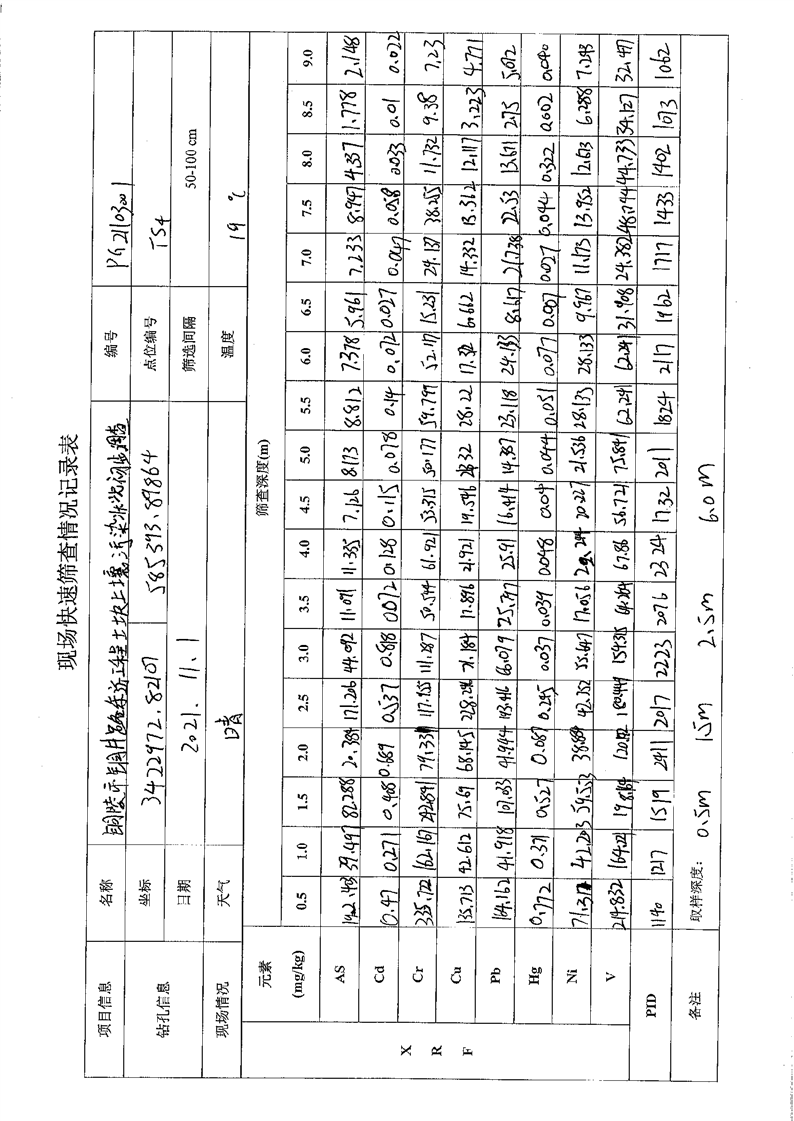 现场快速筛查情况记录表
项目信息 名称 铜陵市铜井路东延工程土块土壤污染状况初步调查 编号 PG2110301
钻孔信息 坐标 3422972.82107 585393.89864 点位编号 TS4
日期 2021.11.1 筛选间隔 50-100 cm
现场情况 天气 晴 温度 19 ℃
元素 (mg/kg) 筛查深度(m)
0.5 1.0 1.5 2.0 2.5 3.0 3.5 4.0 4.5 5.0 5.5 6.0 6.5 7.0 7.5 8.0 8.5 9.0
XRF
AS 39.497 82.288 20.384 171.206 44.092 11.071 11.335 7.126 8.173 8.812 7.378 5.961 7.233 8.947 4.337 1.778 2.148
Cd 0.47 0.271 0.408 0.689 0.537 0.818 0.072 0.128 0.115 0.078 0.14 0.072 0.027 0.047 0.058 0.033 0.01 0.022
Cr 335.72 162.167 242.891 79.331 117.155 111.287 50.544 61.921 53.315 50.177 59.797 52.117 15.231 24.137 38.255 11.732 9.38 7.23
Cu 135.713 42.612 75.69 68.145 228.216 71.184 17.896 21.921 19.546 28.22 17.32 6.662 14.332 13.312 12.117 3.223 4.771
Pb 164.162 41.918 107.033 41.944 113.416 66.079 25.747 25.91 16.414 14.337 23.118 24.133 8.617 21.738 22.53 13.671 2.75 5.012
Hg 0.772 0.371 0.527 0.087 0.245 0.037 0.039 0.048 0.04 0.044 0.051 0.077 0.007 0.027 0.044 0.322 0.002 0.040
Ni 71.378 42.203 54.553 38.884 42.252 55.647 17.056 20.227 21.536 28.133 28.133 9.967 11.173 13.952 12.673 6.288 7.243
V 219.832 164.02 198.164 154.315 64.264 67.86 56.721 75.841 62.241 62.241 31.908 24.382 48.744 44.733 34.127 32.47
PID 1140 1217 1519 2411 2017 2223 2076 2324 17.32 2011 1824 2117 1962 1717 1433 1402 1073 1062
备注 取样深度: 0.5m 1.5m 2.5m 6.0m